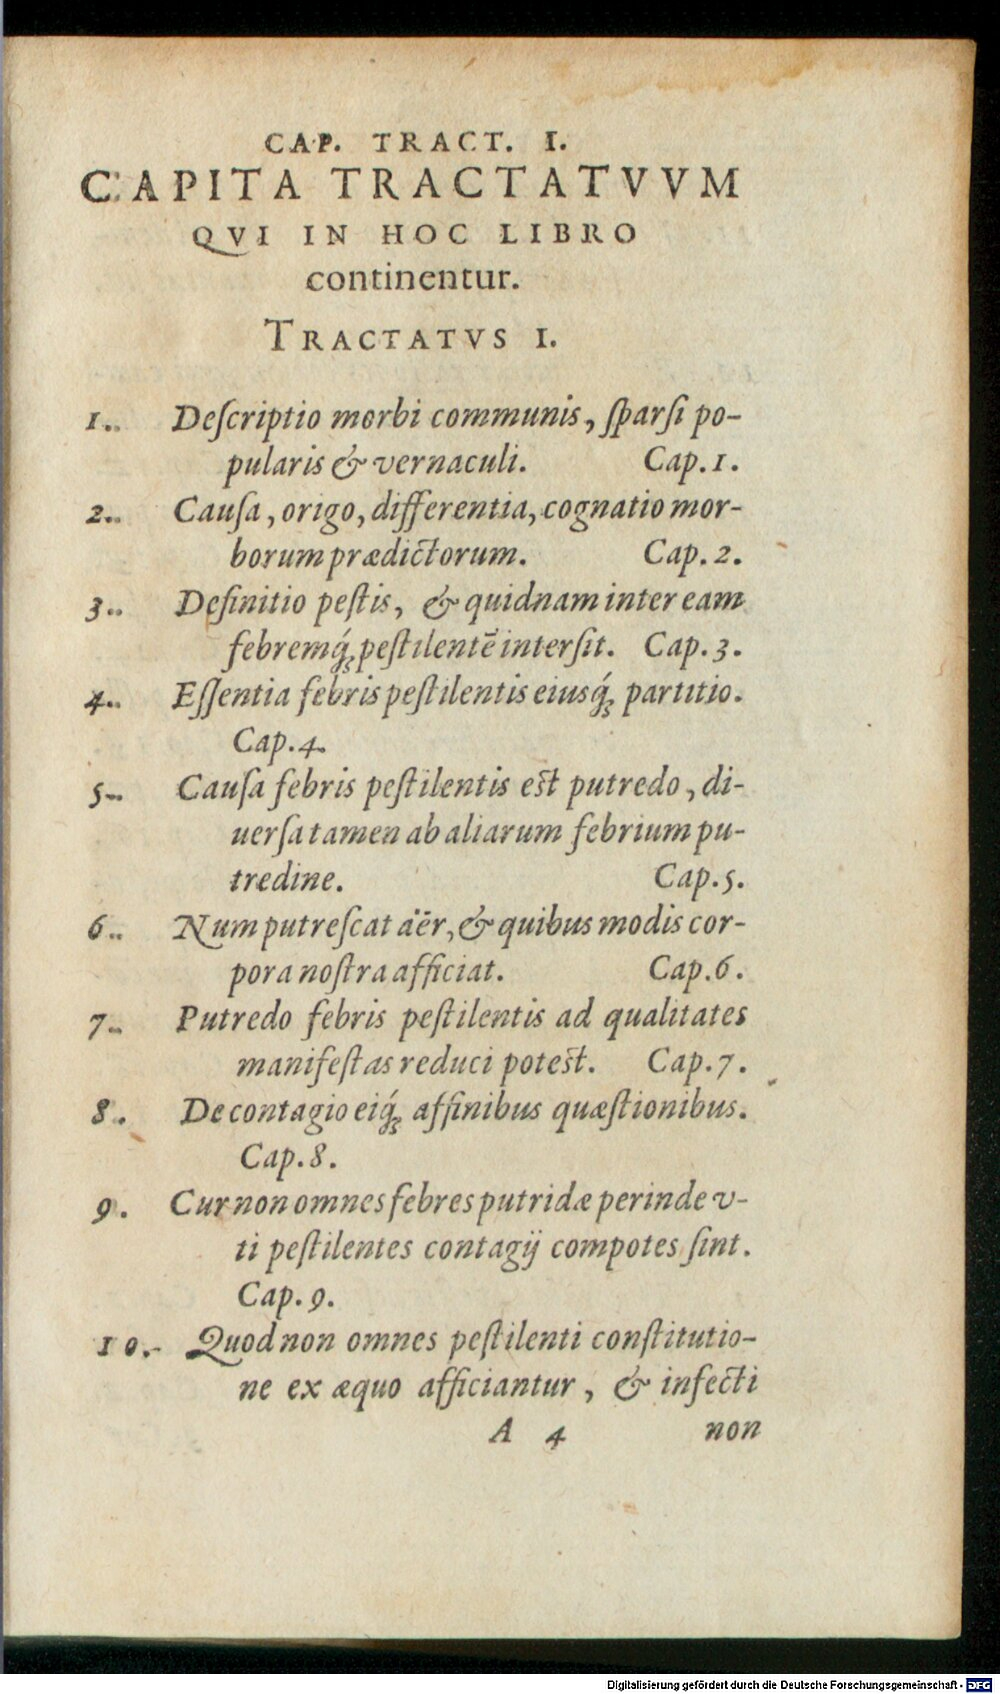 CAP. TRACT. I.
CAPITA TRACTATVVM
QVI IN HOC LIBRO
continentur.
TRACTATVS I.
1. Deſcriptio morbi communis, ſparſi po-
pularis & vernaculi. Cap. 1.
2. Cauſa, origo, differentia, cognatio mor-
borum prædictorum. Cap. 2.
3. Definitio peſtis, & quidnam inter eam
febremq́; peſtilentē interſit. Cap. 3.
4. Eſſentia febris peſtilentis eiusq́; partitio.
Cap. 4.
5. Cauſa febris peſtilentis est putredo, di-
uerſa tamen ab aliarum febrium pu-
tredine. Cap. 5.
6. Num putreſcat aër, & quibus modis cor-
pora noſtra afficiat. Cap. 6.
7. Putredo febris peſtilentis ad qualitates
manifeſtas reduci potest. Cap. 7.
8. De contagio eiq́; affinibus quæſtionibus.
Cap. 8.
9. Cur non omnes febres putridæ perinde v-
ti peſtilentes contagij compotes ſint.
Cap. 9.
10. Quod non omnes peſtilenti conſtitutio-
ne ex æquo afficiantur, & infecti
A 4 non
Digitalisierung gefördert durch die Deutsche Forschungsgemeinschaft - DFG